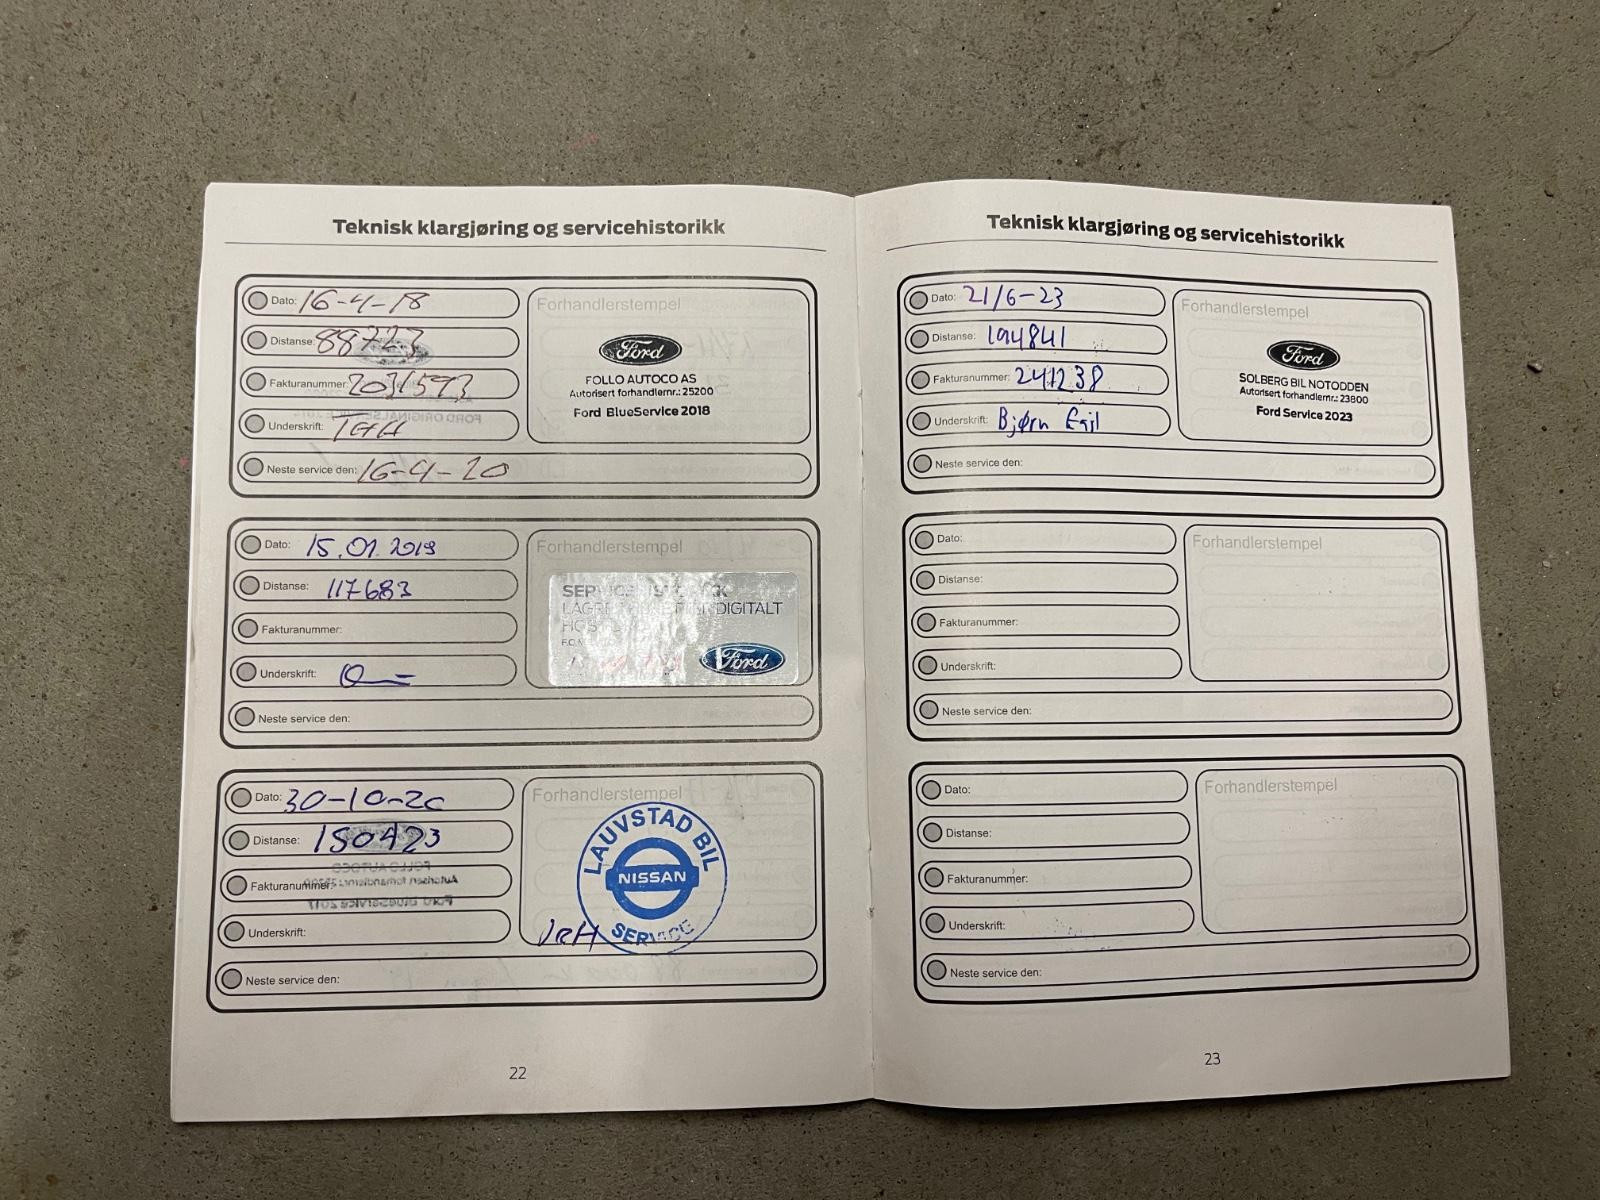 Teknisk klargjøring og servicehistorikk
Dato: 16-4-18
Distanse: 88723
Fakturanummer: 2031593
Underskrift:
Neste service den: 16-4-20
Forhandlerstempel
Ford
FOLLO AUTOCO AS
Autorisert forhandlernr.: 25200
Ford BlueService 2018
Dato: 15.01.2019
Distanse: 117683
Fakturanummer:
Underskrift:
Neste service den:
Forhandlerstempel
DIGITALT
Ford
Dato: 30-10-20
Distanse: 150423
Fakturanummer:
Underskrift:
Neste service den:
Forhandlerstempel
LAUVSTAD BIL
NISSAN
SERVICE
22
Teknisk klargjøring og servicehistorikk
Dato: 21/6-23
Distanse: 194841
Fakturanummer: 241238
Underskrift: Bjørn Egil
Neste service den:
Forhandlerstempel
Ford
SOLBERG BIL NOTODDEN
Autorisert forhandlernr.: 23800
Ford Service 2023
Dato:
Distanse:
Fakturanummer:
Underskrift:
Neste service den:
Forhandlerstempel
Dato:
Distanse:
Fakturanummer:
Underskrift:
Neste service den:
Forhandlerstempel
23